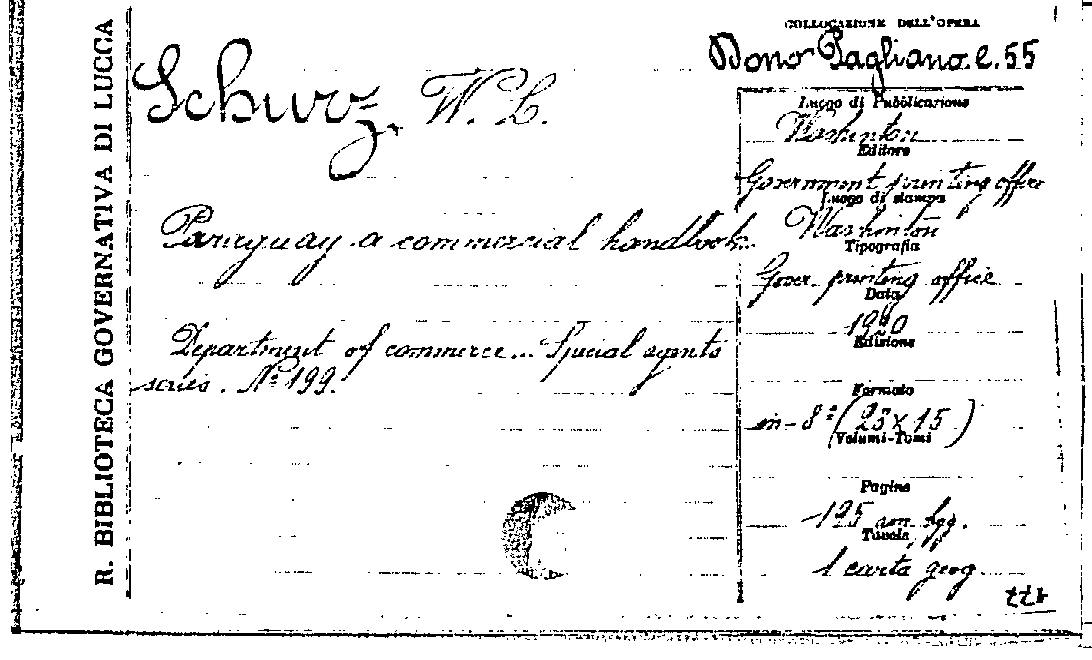 R. BIBLIOTECA GOVERNATIVA DI LUCCA
COLLOCAZIONE DELL'OPERA
Dono Pagliano. e. 55
Schurz, W. L.
Paraguay a commercial handbook.
Department of commerce... Special agents
series. Nº 199.
Luogo di Pubblicazione
Washinton
Editore
Government printing office
Luogo di stampa
Washinton
Tipografia
Gover. printing office
Data
1920
Edizione
Formato
in-8º (23x15)
Volumi-Tomi
Pagine
195 con
Tavole
1 carta geog.